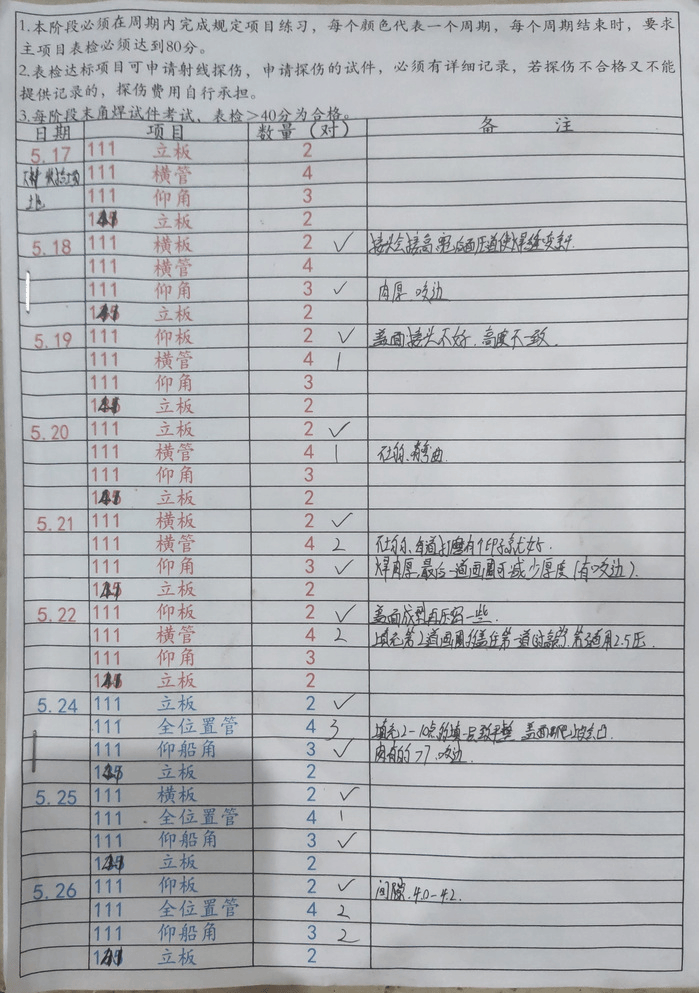 1.本阶段必须在周期内完成规定项目练习，每个颜色代表一个周期，每个周期结束时，要求
主项目表检必须达到80分。
2.表检达标项目可申请射线探伤，申请探伤的试件，必须有详细记录，若探伤不合格又不能
提供记录的，探伤费用自行承担。
3.每阶段末角焊试件考试，表检>40分为合格。
日期 项目 数量（对） 备 注
5.17 111 立板 2
111 横管 4
111 仰角 3
立板 2
5.18 111 横板 2 ✓
111 横管 4
111 仰角 3 ✓ 肉厚 咬边
立板 2
5.19 111 仰板 2 ✓ 盖面接头不好.高度不一致.
111 横管 4 1
111 仰角 3
立板 2
5.20 111 立板 2 ✓
111 横管 4 1
111 仰角 3
立板 2
5.21 111 横板 2 ✓
111 横管 4 2
111 仰角 3 ✓ 焊肉厚.最后一道画圈可减少厚度(有咬边).
立板 2
5.22 111 仰板 2 ✓
111 横管 4 2
111 仰角 3
立板 2
5.24 111 立板 2 ✓
111 全位置管 4 3
111 仰船角 3 ✓
立板 2
5.25 111 横板 2 ✓
111 全位置管 4 1
111 仰船角 3 ✓
立板 2
5.26 111 仰板 2 ✓ 间隙.4.0-4.2.
111 全位置管 4 2
111 仰船角 3 2
立板 2